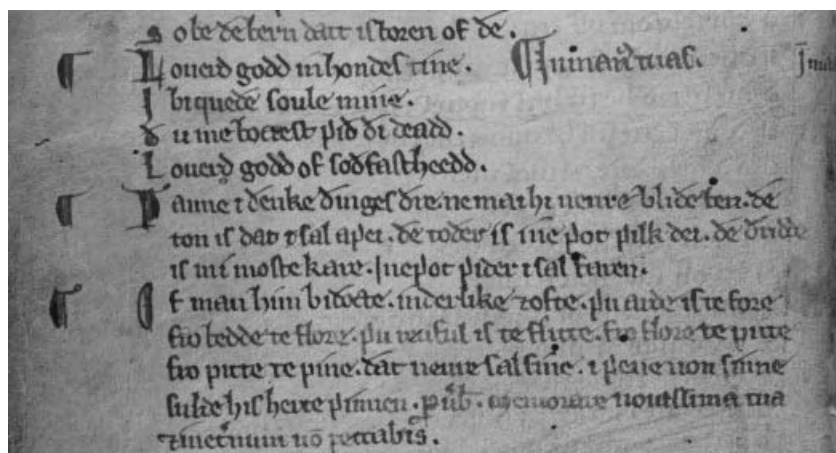 S o be ðe bern datt is boren of ðe.
L ouerd godd in hondes tine. ¶ In man᾽ tuas.
I bi quede soule mine.
ð u me boctest ƿið ði deadd.
L ouerd godd of soðfastheedd.
Ƿ anne i ðenke ðinges ðre. ne mai hi neure bliðe ben. ðe
ton is dat i sal aƿei. ðe toðer is ine ƿot ƿilk dei. ðe ðridde
is mi moste kare. I ne ƿot ƿider i sal faren.
I f man him biðocte. inderlike ⁊ ofte. ƿu arde is te fore
fro bedde te flore. ƿu reuful is te flitte. fro flore te pitte
fro pitte te pine. ðat neure sal fine. i ƿene non sinne
sulde his herte ƿinnen. memorare nouissima tua
⁊ inet᾽num nō peccabis.